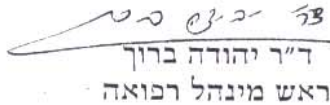 ד״ר יהודה ברוך
ראש מינהל רפואה